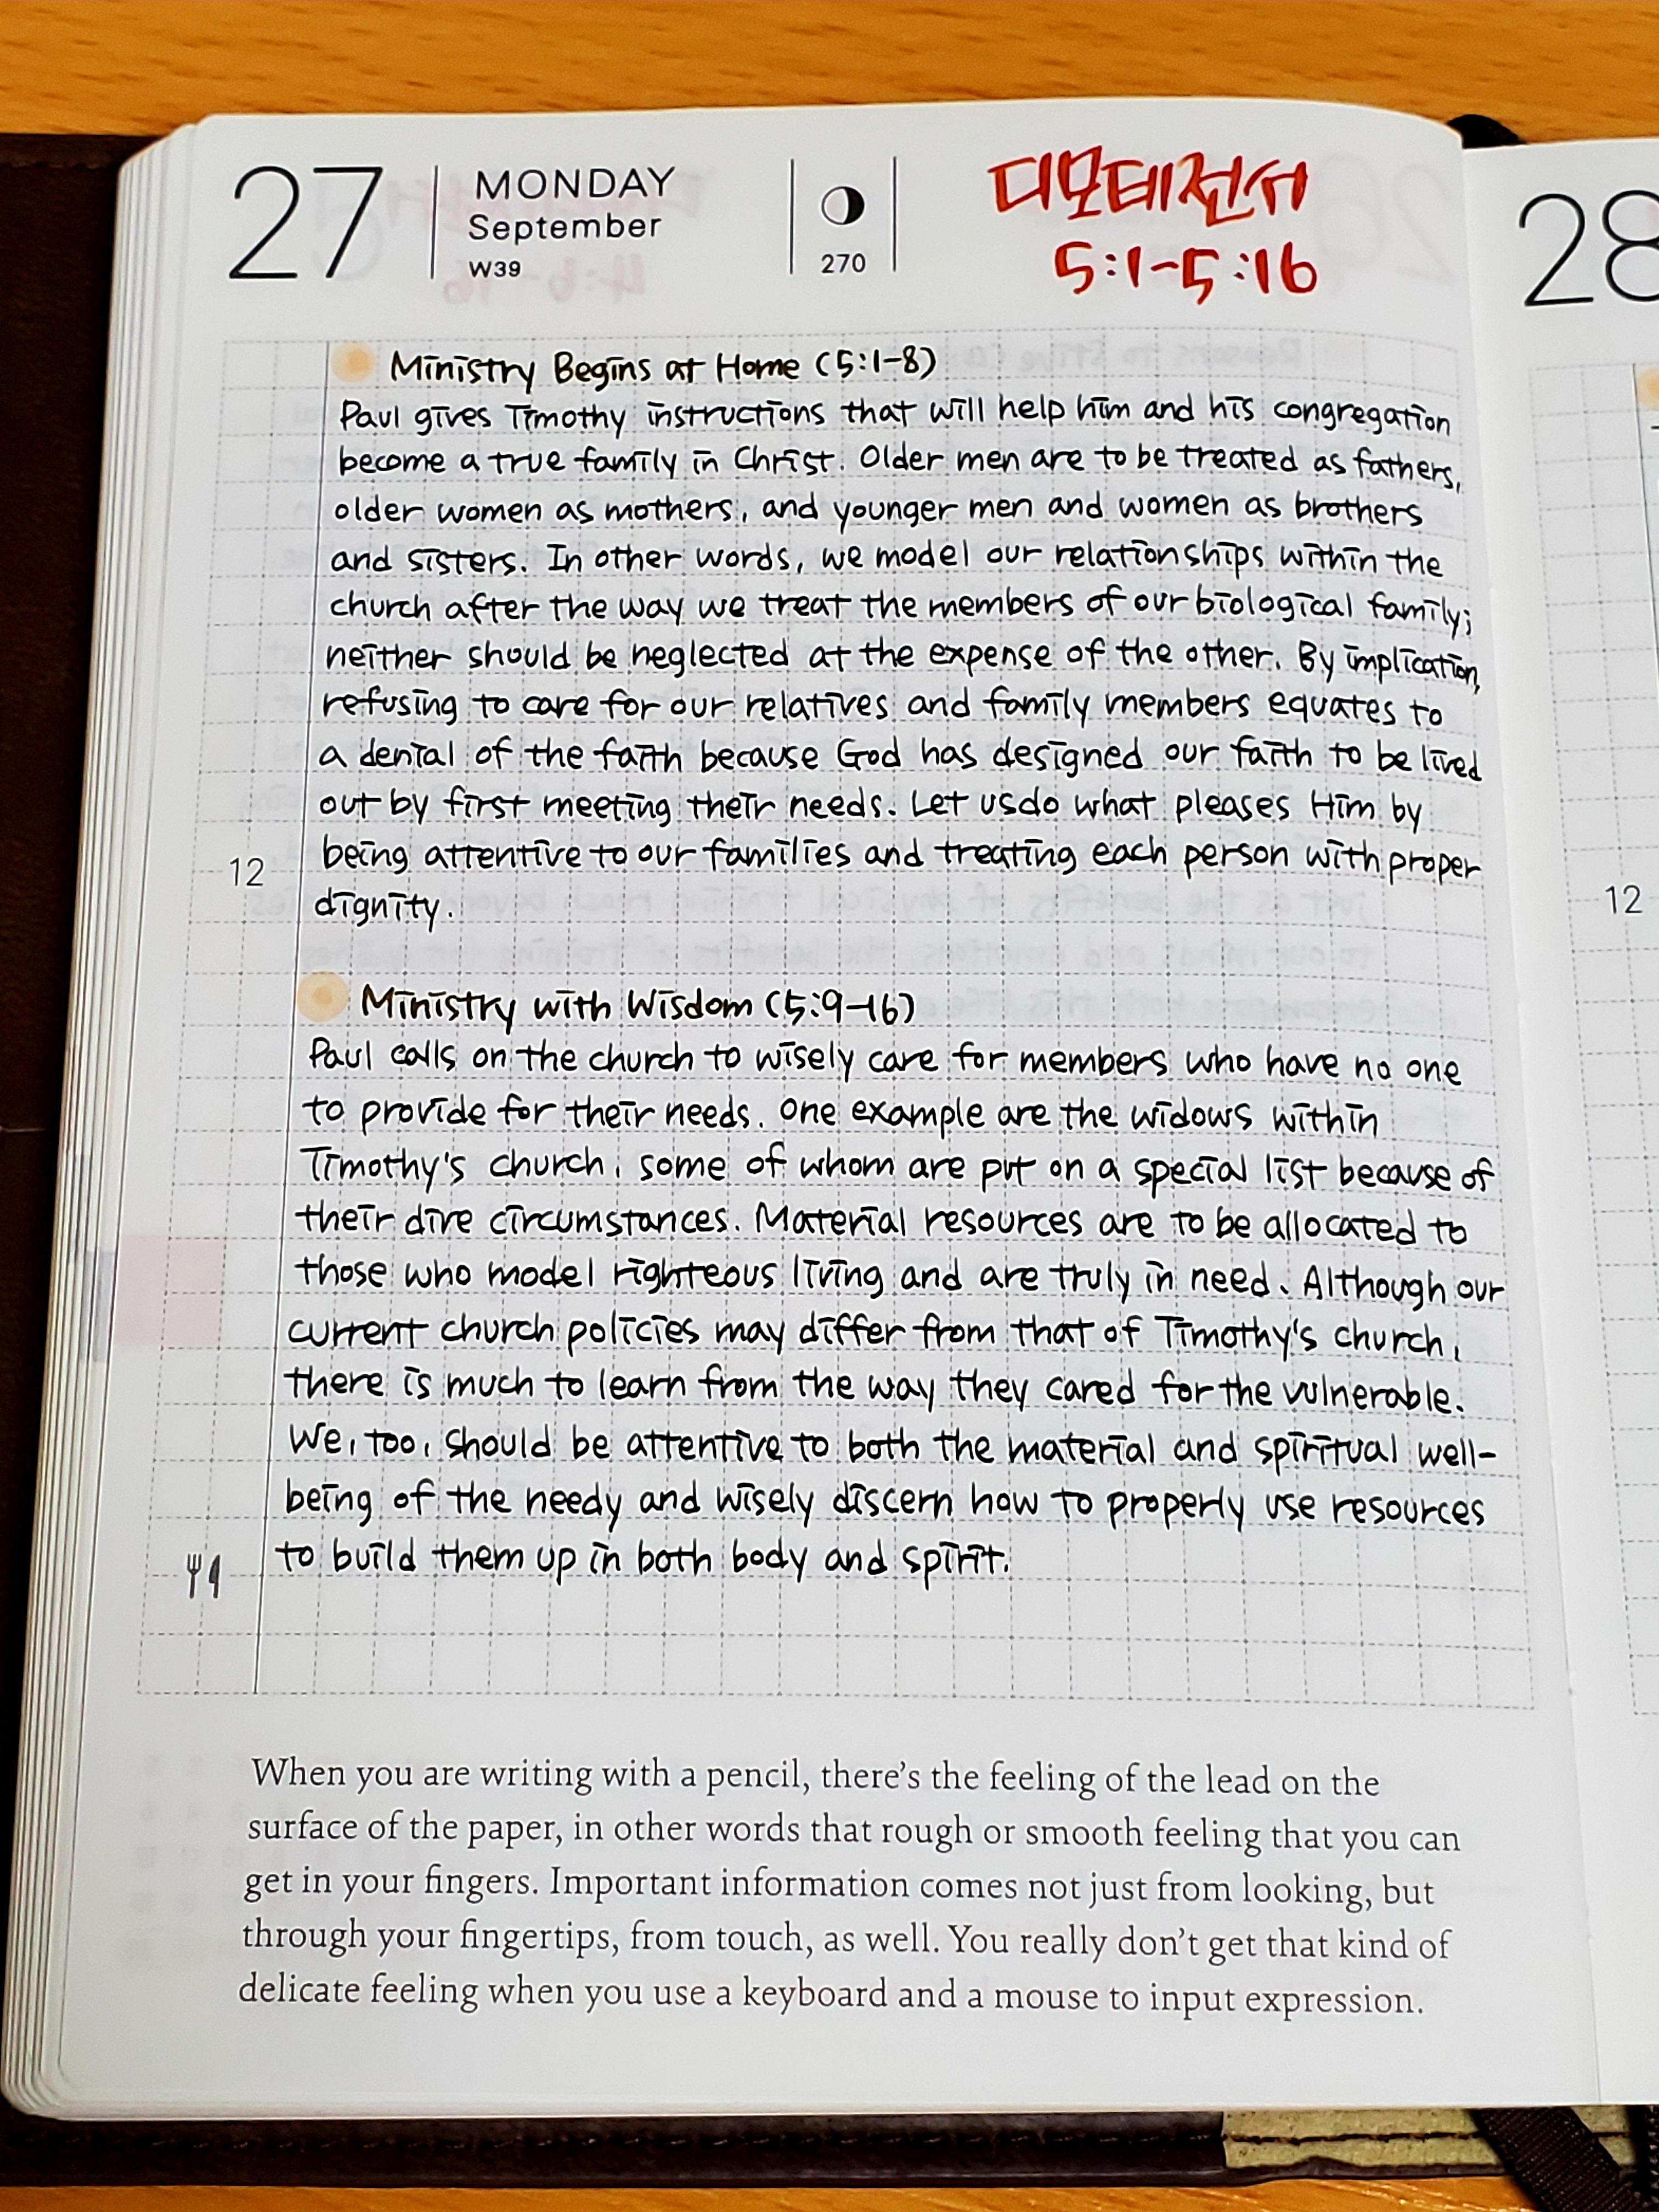 27
MONDAY
September
W39
270
디모데전서
5:1-5:16
28
Ministry Begins at Home (5:1-8)
Paul gives Timothy instructions that will help him and his congregation
become a true family in Christ. Older men are to be treated as fathers,
older women as mothers, and younger men and women as brothers
and sisters. In other words, we model our relationships within the
church after the way we treat the members of our biological family;
neither should be neglected at the expense of the other. By implication,
refusing to care for our relatives and family members equates to
a denial of the faith because God has designed our faith to be lived
out by first meeting their needs. Let usdo what pleases Him by
12
being attentive to our families and treating each person with proper
dignity.
12
Ministry with Wisdom (5:9-16)
Paul calls on the church to wisely care for members who have no one
to provide for their needs. One example are the widows within
Timothy's church, some of whom are put on a special list because of
their dire circumstances. Material resources are to be allocated to
those who model righteous living and are truly in need. Although our
current church policies may differ from that of Timothy's church,
there is much to learn from the way they cared for the vulnerable.
We, too, should be attentive to both the material and spiritual well-
being of the needy and wisely discern how to properly use resources
to build them up in both body and spirit.
When you are writing with a pencil, there's the feeling of the lead on the
surface of the paper, in other words that rough or smooth feeling that you can
get in your fingers. Important information comes not just from looking, but
through your fingertips, from touch, as well. You really don't get that kind of
delicate feeling when you use a keyboard and a mouse to input expression.